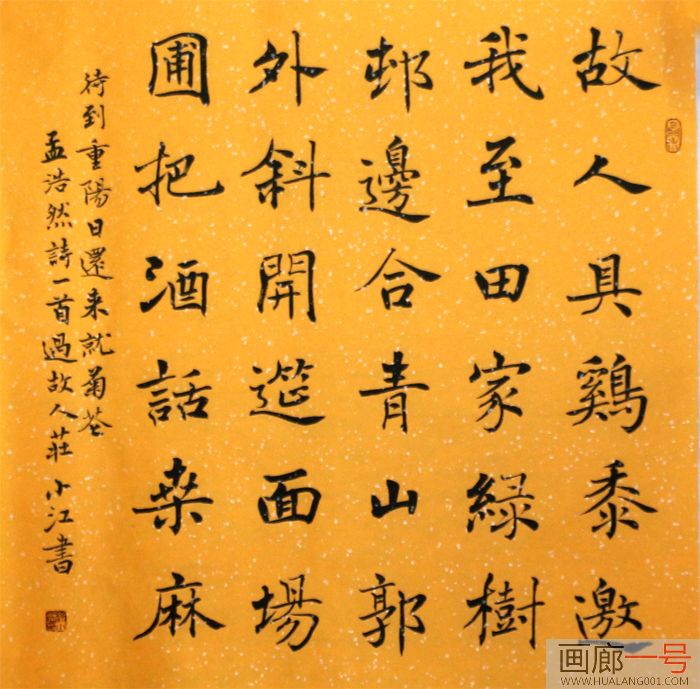 故人具鷄黍邀
我至田家綠樹
邨邊合青山郭
外斜開筵面場
圃把酒話桒麻
待到重陽日還来就菊花
孟浩然詩一首過故人莊 小江書
画廊一号
WWW.HUALANG001.COM